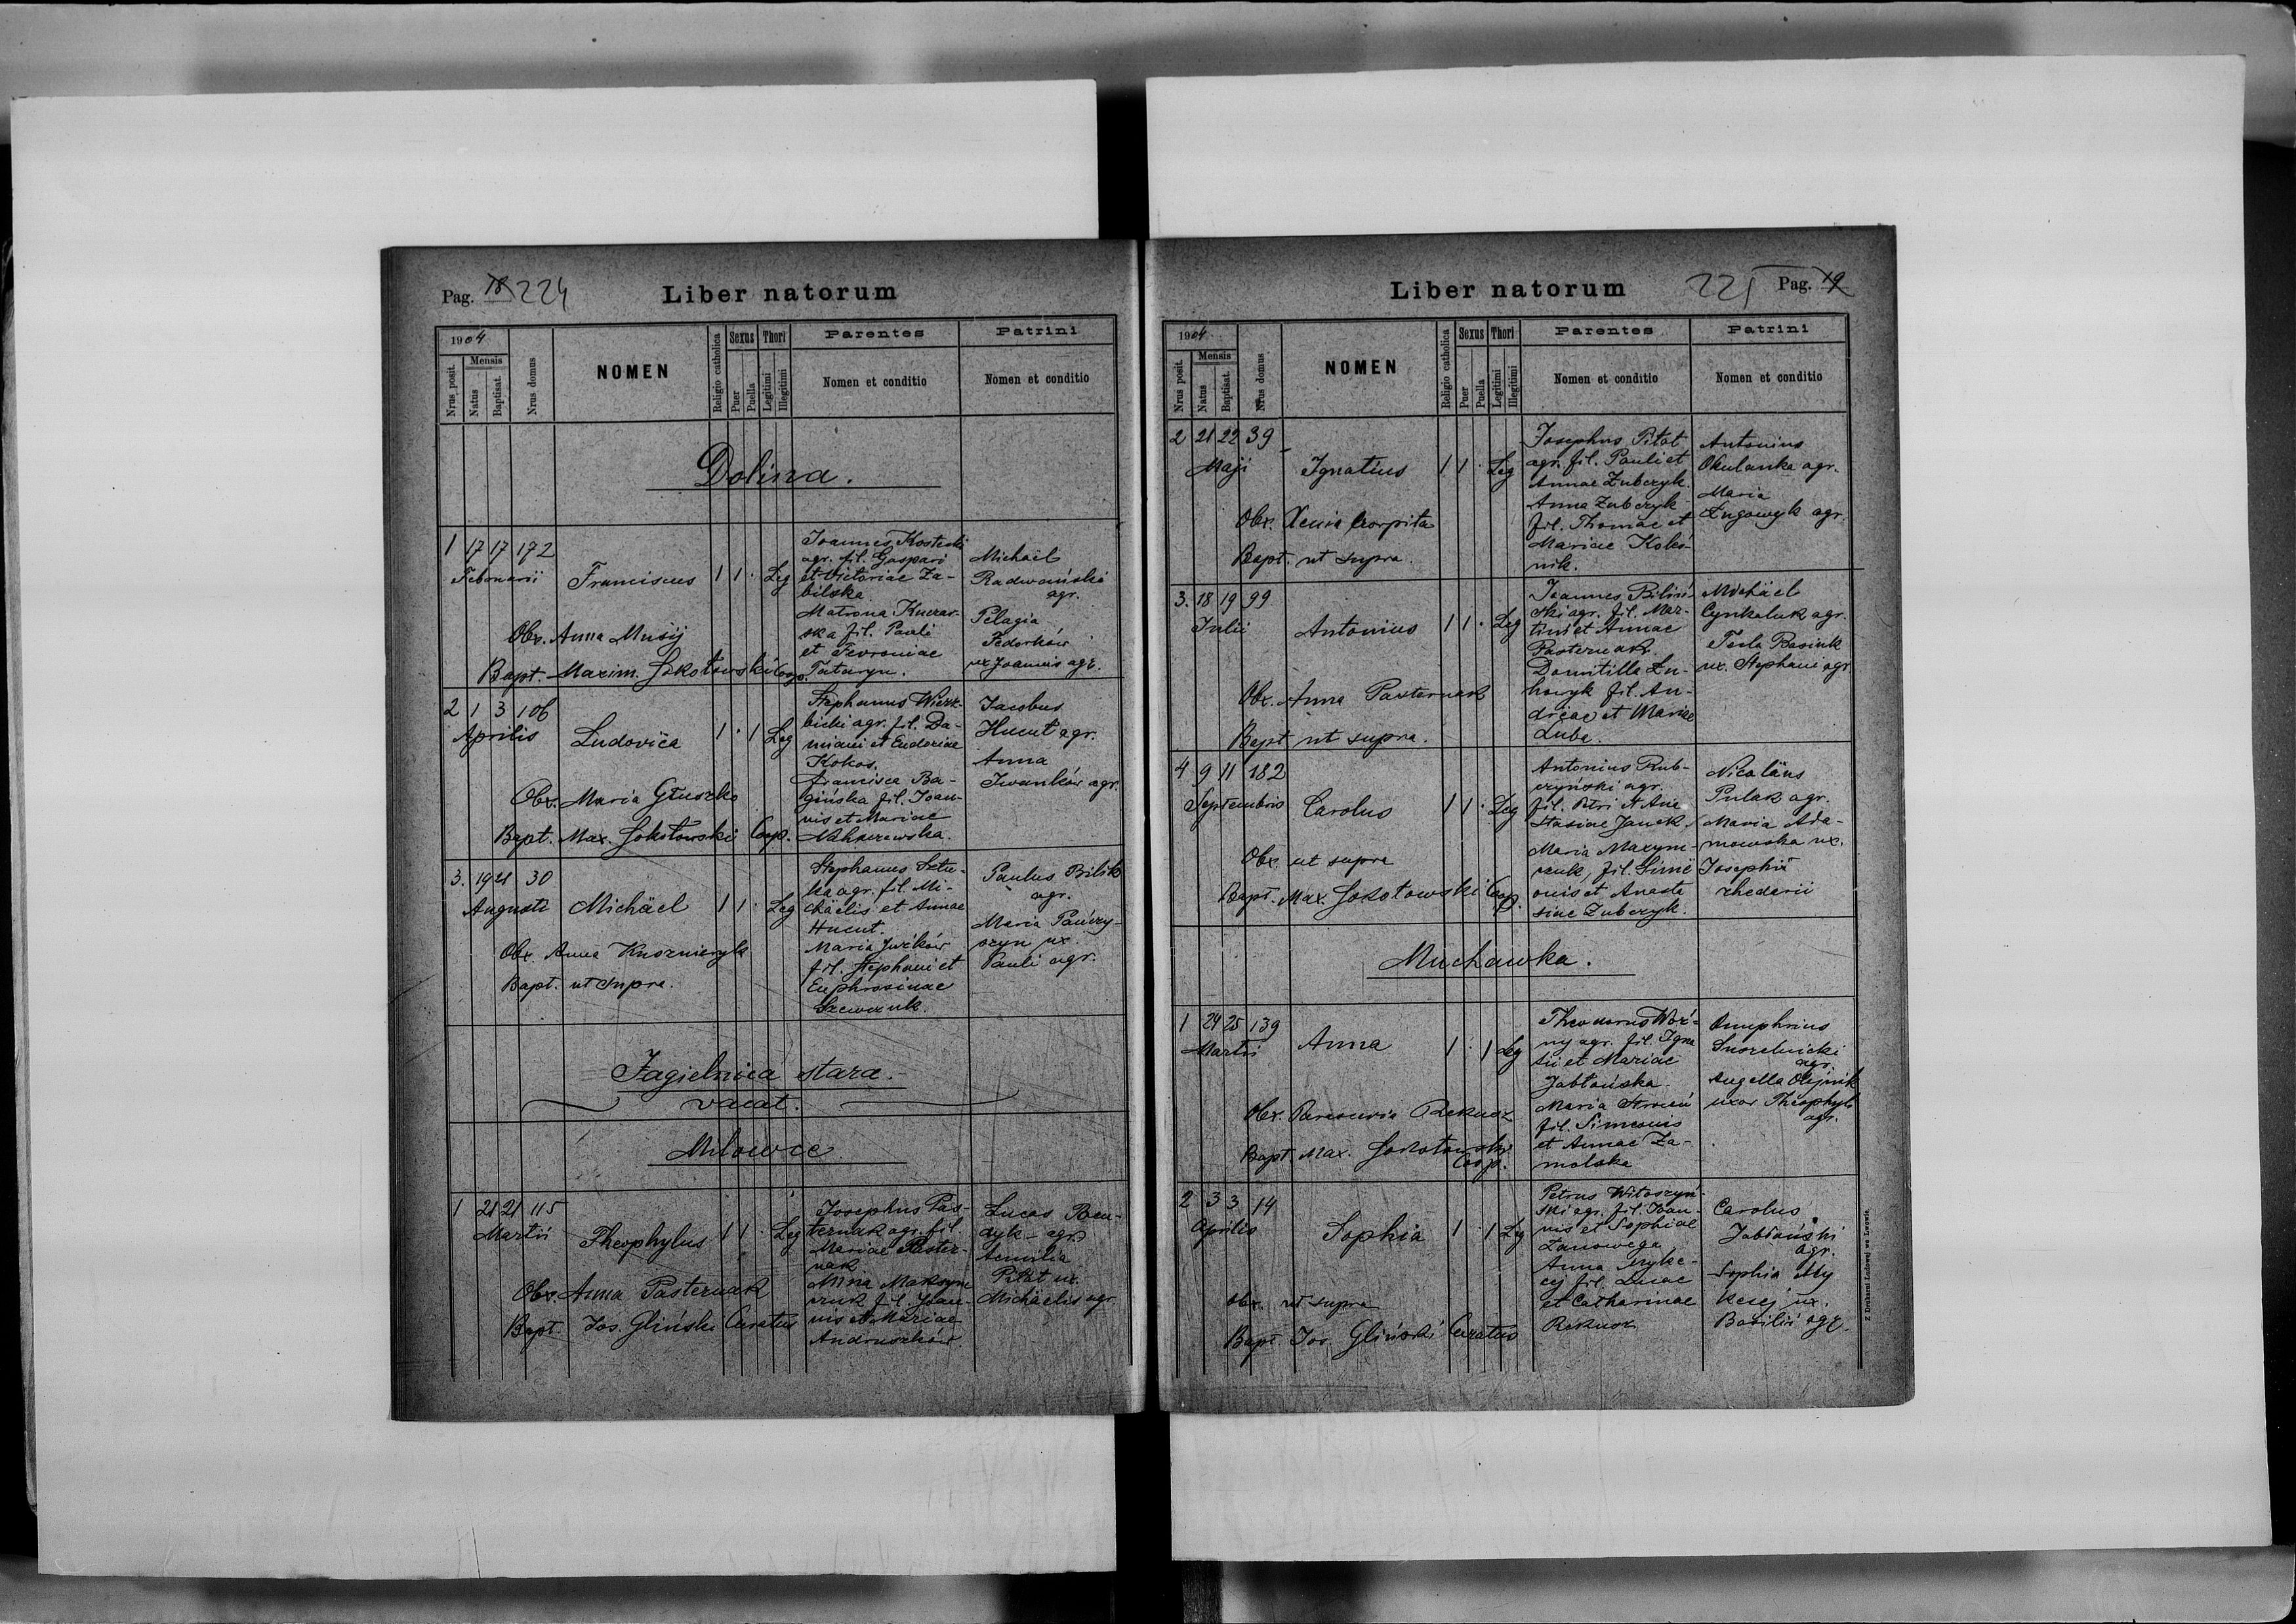 Pag. 18 224
Liber natorum
1904
Nrus posit.
Mensis
Natus
Baptisat.
Nrus domus
NOMEN
Religio catholica
Sexus
Puer
Puella
Thori
Legitimi
Illegitimi
Parentes
Nomen et conditio
Patrini
Nomen et conditio
Dolina.
1 17 17 172
Februarii
Franciscus 1 1 · Leg
Obx. Anna Musij
Bapt. Maxim. Sokołowski Coop.
Joannes Kostecki
agr. fil. Gaspari
et Victoriae Za-
bilska
Matrona Kucza-
ska fil. Pauli
et Fevroniae
Tataryn.
Michaël
Radwański
agr.
Pelagia
Fedorków
ux Joannis agr.
2 1 3 106
Aprilis
Ludovica 1 · 1 Leg
Obx. Maria Głuszko
Bapt. Max. Sokołowski Coop.
Stephanus Wierz-
bicki agr. fil. Da-
miani et Eudoxiae
Kokos.
Francisca Ba-
gińska fil. Joan-
nis et Mariae
Jacobus
Hucut agr.
Anna
Iwanków agr.
3. 19 21 30
Augusti
Michäel 1 1 · Leg
Obx. Anna Kuszneryk
Bapt. ut supra.
Stephanus
agr. fil. Mi-
chäelis et Annae
Hucut.
Maria Jurków
fil. Stephani et
Euphrosinae
Szewczuk.
Paulus Bilik
agr.
Maria
ux
Pauli agr.
Jagielnica stara.
vacat.
Milowce
1 21 21 115
Martii
Theophylus 1 1 · Leg
Obx. Anna Pasternak
Bapt. Jos. Gliński Curatus
Josephus Pas-
ternak agr. fil.
Mariae Paster-
nak
Anna Maksym-
czuk fil. Joan-
nis et Mariae
Andruszków.
Lucas
agr.
Aemilia
Pitat ux.
Michäelis agr.
Liber natorum
225 Pag. 19
1904
Nrus posit.
Mensis
Natus
Baptisat.
Nrus domus
NOMEN
Religio catholica
Sexus
Puer
Puella
Thori
Legitimi
Illegitimi
Parentes
Nomen et conditio
Patrini
Nomen et conditio
2 21 22 39
Maji
Ignatius 1 1 · Leg
Obx. Xenia
Bapt. ut supra.
Josephus Pitat
agr. fil. Pauli et
Annae Zubczyk.
Anna Zubczyk
fil. Thomae et
Mariae Koleś-
nik.
Antonius
Okulanka agr.
Maria
Ługowyk agr.
3. 18 19 99
Julii
Antonius 1 1 · Leg
Obx. Anna Pasternak
Bapt ut supra.
Joannes Biliń-
ski agr. fil. Mar-
tini et Annae
Pasternak.
Domitilla Łu-
howyk fil. An-
dreae et Mariae
Łuba.
Michäel
Cynkaluk agr.
Tecla Basiuk
ux. Stephani agr.
4 9 11 182
Septembris
Carolus 1 1 · Leg
Obx. ut supra
Bapt. Max. Sokołowski Coop.
Antonius Rub-
czyński agr.
fil. Petri et Ana
stasiae Janek.
Maria Maxym-
czuk, fil. Sime
onis et Anasta
siae Zubczyk.
Nicoläus
Pulak agr.
Maria Ada-
mowska ux.
Josephi
rhedarii
Muchawka.
1 24 25 139
Martii
Anna 1 · 1 Leg
Obx. Parascevia Rekucz
Bapt. Max. Sokołowski
Coop.
Theodorus Woź-
ny agr. fil. Igna
tii et Mariae
Jabłońska.
Maria
fil. Simeonis
et Annae Za-
molska
Onuphrius
agr.
Angella Olejnik
uxor Theophyli
agr.
2 3 3 14
Aprilis
Sophia 1 · 1 Leg
Obx. ut supra
Bapt. Jos. Gliński Curatus
Petrus Witoszyń-
ski agr. fil. Joan-
nis et Sophiae
Anna Myke-
cej fil. Lucae
et Catharinae
Rekucz
Carolus
Jabłoński
agr.
Sophia My
kecej ux.
Basilii agr.
Z Drukarni Ludowej we Lwowie.